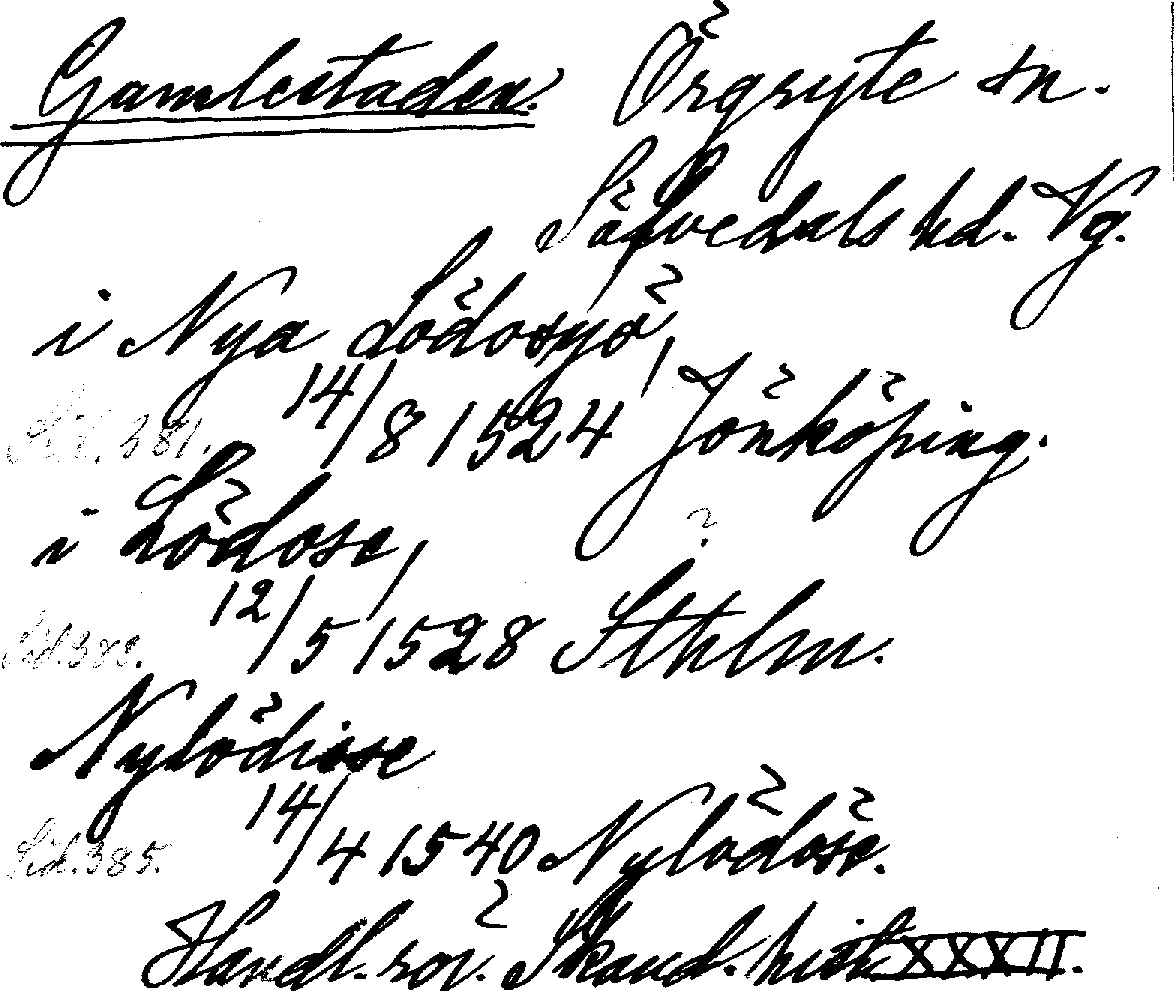 Gamlestaden. Örgryte sn.
Sävedals hd. Vg.
i Nya Lödosyö,
Sid. 381. 14/8 1524 Jönköping.
i Lödose, ?
Sid. 382. 12/5 1528 Sthlm.
Nylödiose
Sid. 385. 14/4 1540 Nylödöse.
Handl. rör. Skand. hist. XXXII.